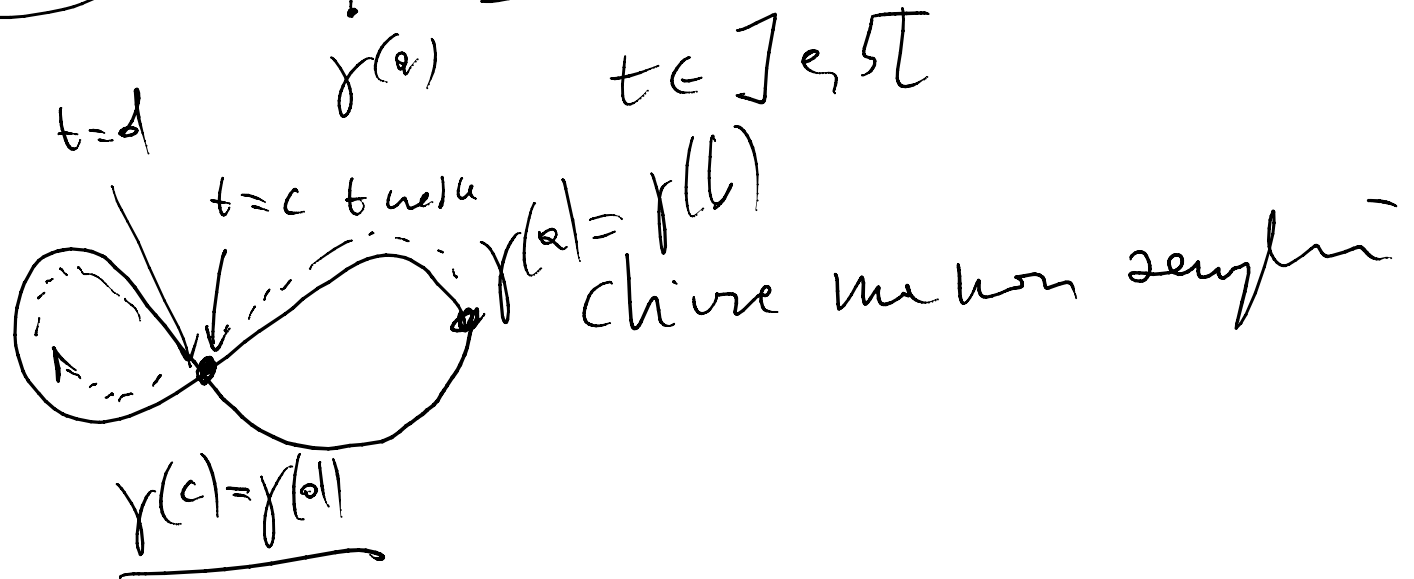 γ(a)
t ∈ ]a, b[
t=d
t=c
γ(a) = γ(b)
chiuse ma non semplici
γ(c)=γ(d)